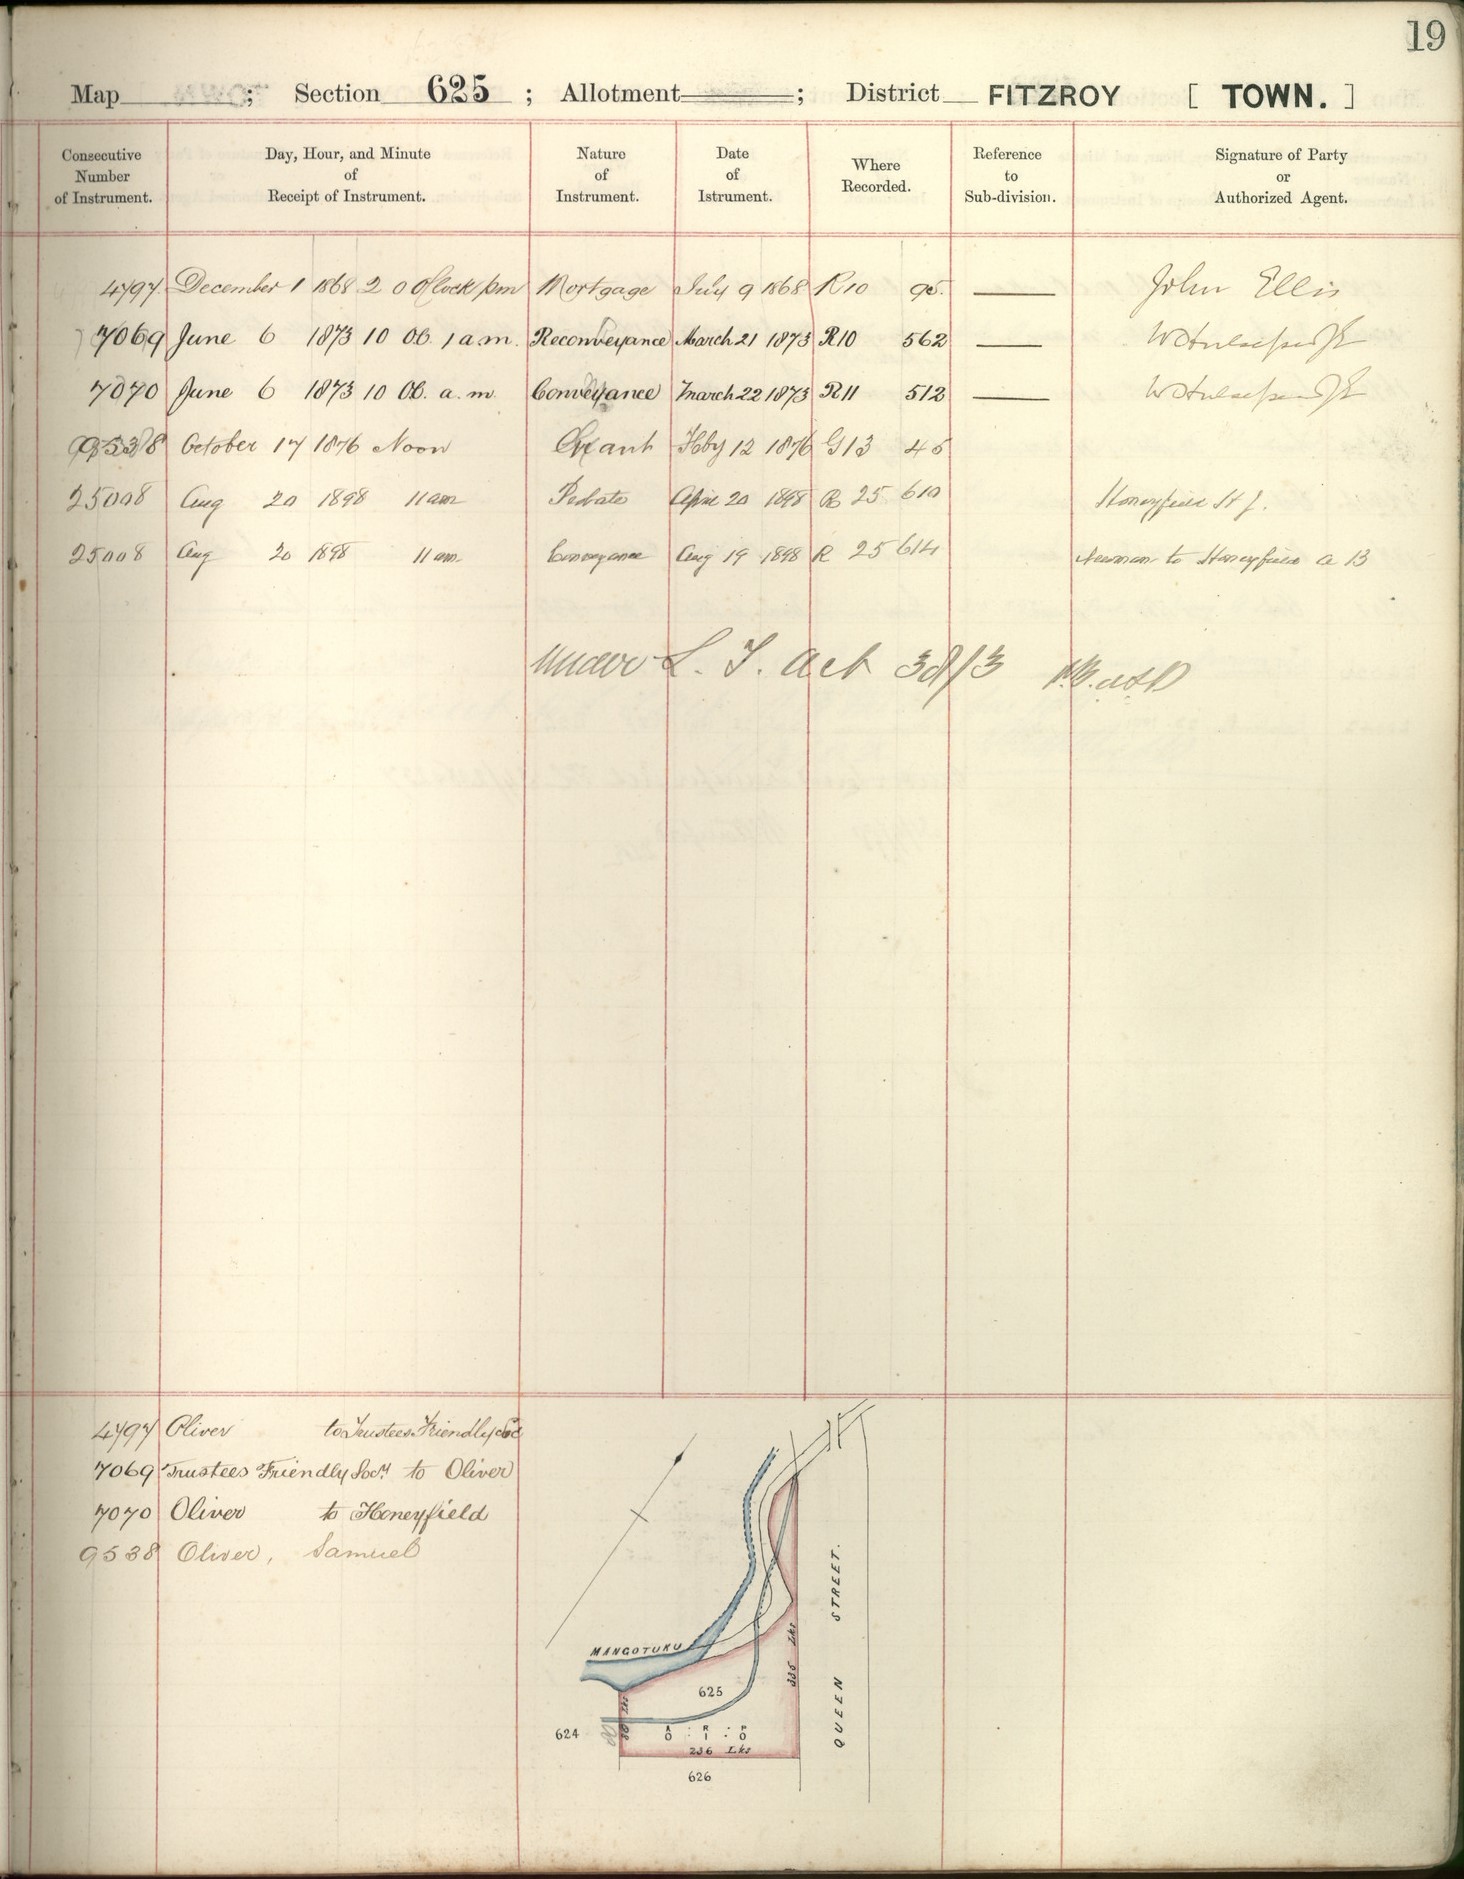 19
Map ; Section 625 ; Allotment ; District FITZROY [ TOWN. ]
Consecutive Number of Instrument. Day, Hour, and Minute of Receipt of Instrument. Nature of Instrument. Date of Istrument. Where Recorded. Reference to Sub-division. Signature of Party or Authorized Agent.
4797 December 1 1868 2 O Clock pm Mortgage July 9 1868 R10 95. John Ellis
7069 June 6 1873 10 a.m. Reconveyance March 21 1873 R10 562
7070 June 6 1873 10 a.m. Conveyance March 22 1873 R11 512
9538 October 17 1876 Noon Grant Feby 12 1876 G13 45
25008 Aug 20 1898 11 am Probate April 20 1898 R 25 610 Honeyfield H J.
25008 Aug 20 1898 11 am Conveyance Aug 19 1898 R 25 614 Newman to Honeyfield A B
Under L. T. Act 38/3
4797 Oliver to Trustees Friendly Soc
7069 Trustees Friendly Socy to Oliver
7070 Oliver to Honeyfield
9538 Oliver, Samuel
MANGOTUKU
QUEEN STREET.
335 Lks
625
624
80 Lks
A . R . P
0 . 1 . 0
236 Lks
626